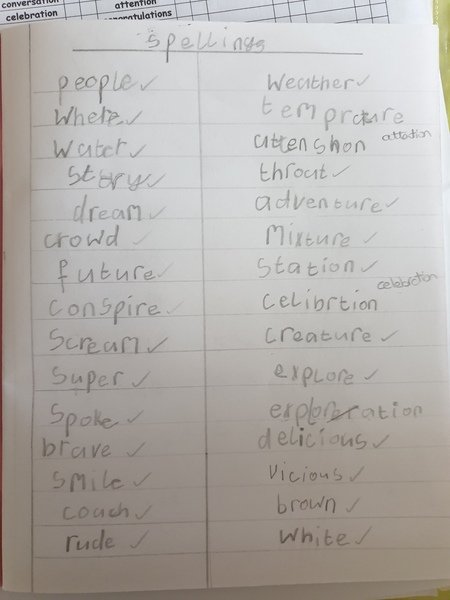 conversation
celebration
attention
congratulations
Spellings
people
Where
Water
Story
dream
crowd
future
conspire
Scream
Super
Spoke
brave
Smile
coach
rude
Weather
attenshon
attention
throat
adventure
Mixture
Station
celebration
celibrtion
creature
explore
delicious
vicious
brown
White